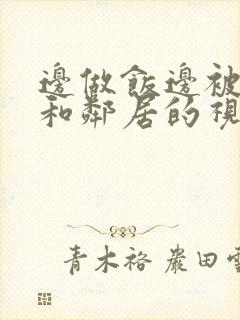 邊做飯邊被
和鄰居的視
青木裕 嚴田雪